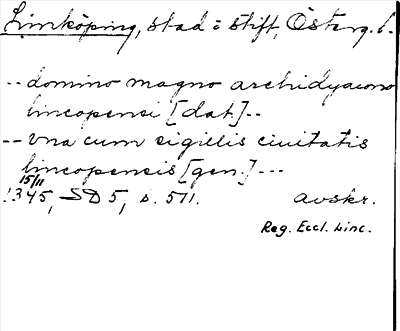 Linköping, stad o stift, Österg. l.
-- domino magno archidyacono
lincopensi [dat.] --
-- vna cum sigillis ciuitatis
lincopensis [gen.] ---
15/11
1345, SD 5, s. 511. avskr.
Reg. Eccl. Linc.